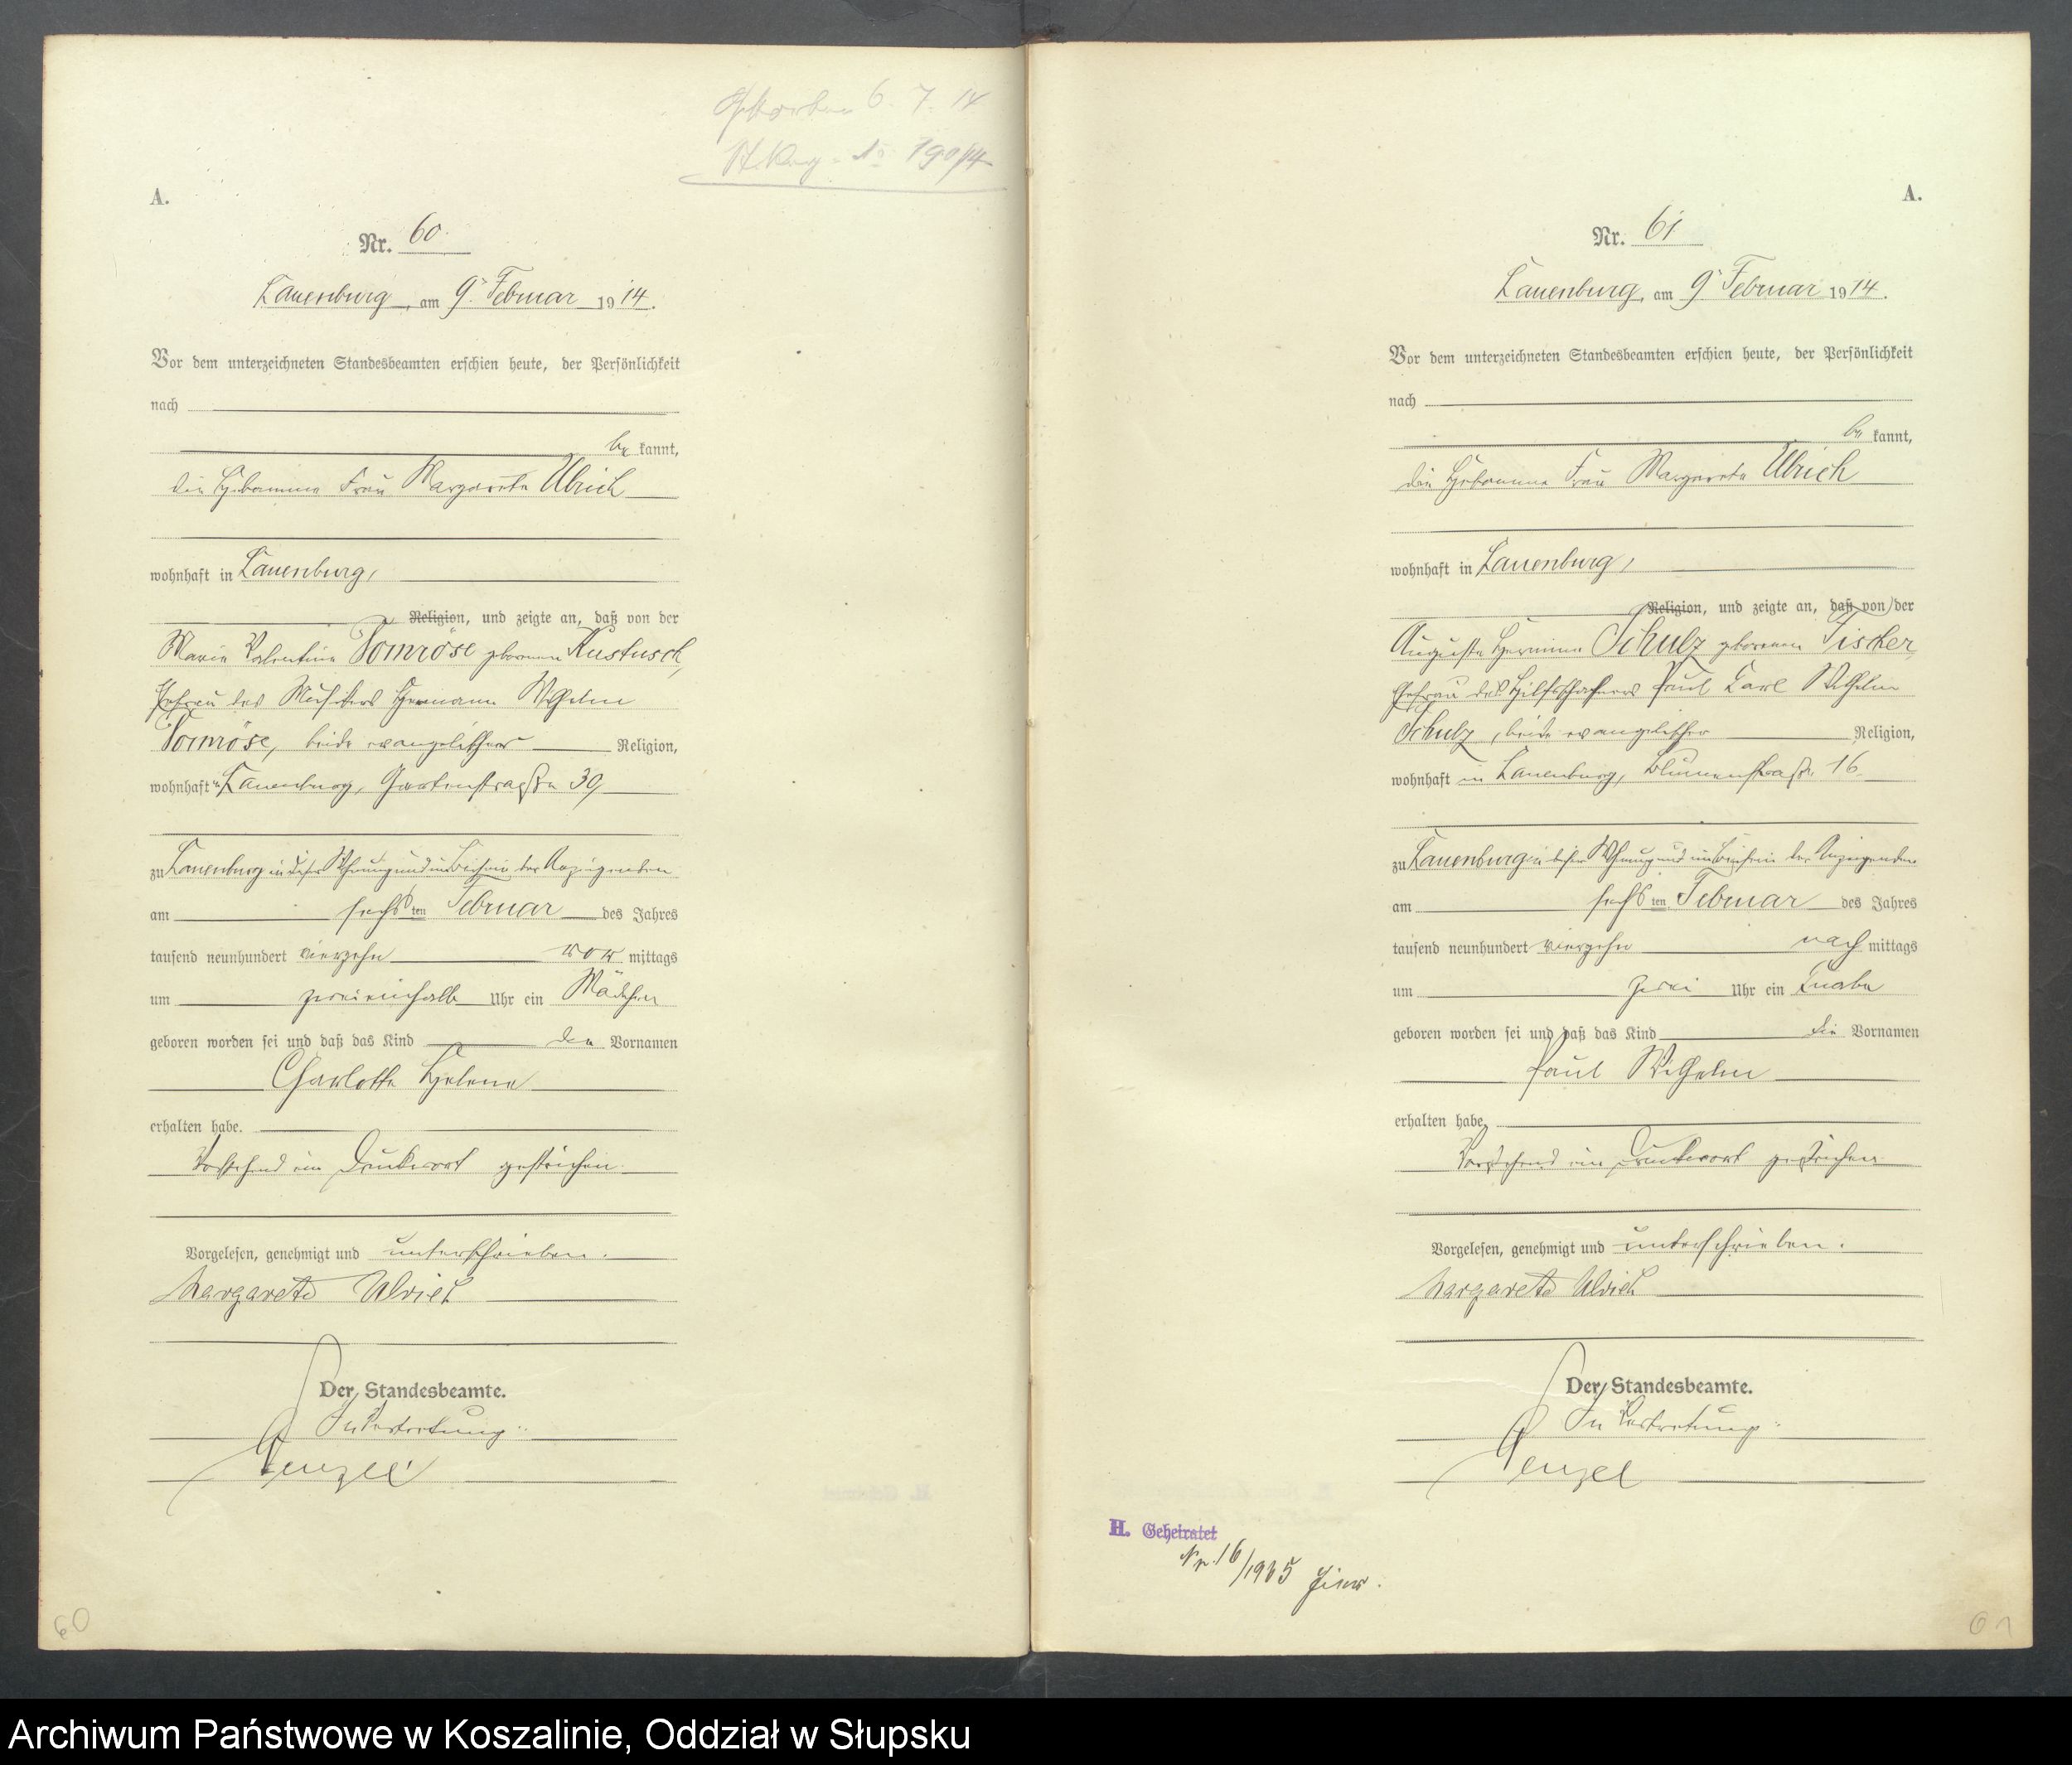 Gestorben 6. 7. 14
A.
Nr. 60.
Lauenburg, am 9. Februar 1914.
Vor dem unterzeichneten Standesbeamten erschien heute, der Persönlichkeit
nach
be kannt,
die Hebamme Frau Margarete Ulrich
wohnhaft in Lauenburg,
Religion, und zeigte an, daß von der
Marie Valentine Pomröse geborenen Kustusch,
Ehefrau des Musikers Hermann Wilhelm
Pomröse, beide evangelischer Religion,
wohnhaft in Lauenburg, Gartenstraße 39,
zu Lauenburg in dieser Wohnung und im Beisein der Anzeigenden
am sechs ten Februar des Jahres
tausend neunhundert vierzehn vor mittags
um zweieinhalb Uhr ein Mädchen
geboren worden sei und daß das Kind den Vornamen
Charlotte Helene
erhalten habe.
Vorstehend ein Druckwort gestrichen.
Vorgelesen, genehmigt und unterschrieben.
Margarete Ulrich
Der Standesbeamte.
In Vertretung:
Penzel
60
A.
Nr. 61
Lauenburg, am 9. Februar 1914.
Vor dem unterzeichneten Standesbeamten erschien heute, der Persönlichkeit
nach
be kannt,
die Hebamme Frau Margarete Ulrich
wohnhaft in Lauenburg,
Religion, und zeigte an, daß von der
Auguste Hermine Schulz geborenen Fischer,
Ehefrau des Hilfsschaffners Paul Carl Wilhelm
Schulz, beide evangelischer Religion,
wohnhaft in Lauenburg, Blumenstraße 16
zu Lauenburg in dieser Wohnung und im Beisein der Anzeigenden
am sechs ten Februar des Jahres
tausend neunhundert vierzehn nach mittags
um zwei Uhr ein Knabe
geboren worden sei und daß das Kind die Vornamen
Paul Wilhelm
erhalten habe.
Vorstehend ein Druckwort gestrichen
Vorgelesen, genehmigt und unterschrieben.
Margarete Ulrich
Der Standesbeamte.
In Vertretung:
Penzel
H. Geheiratet
Nr. 16/1935 hier.
61
Archiwum Państwowe w Koszalinie, Oddział w Słupsku